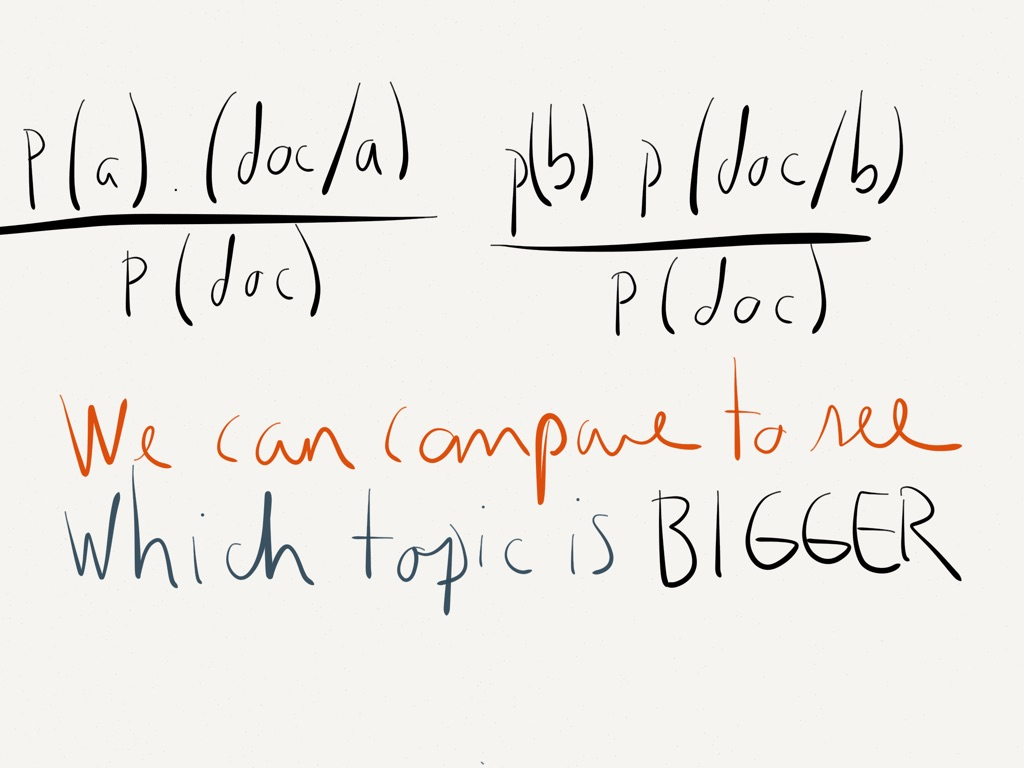 P(a) . (doc/a) p(b) p(doc/b)
P(doc) P(doc)
We can compare to see
Which topic is BIGGER